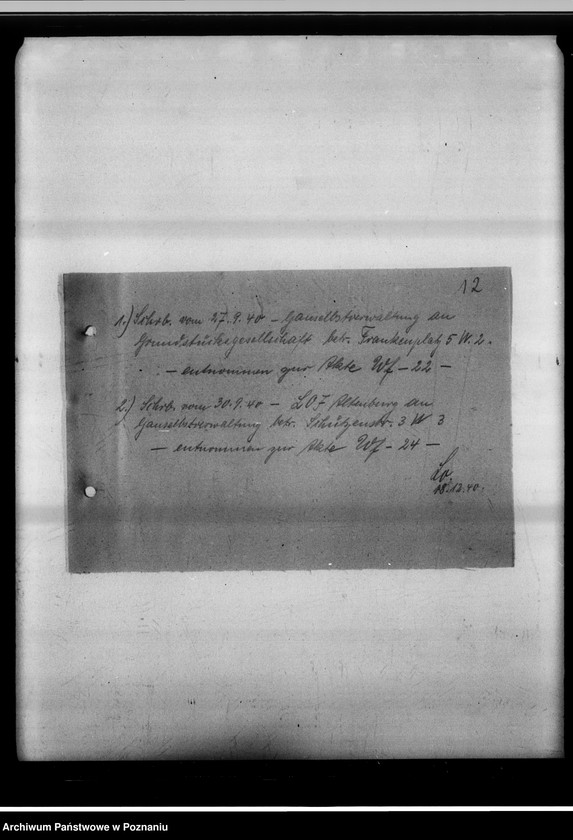 12
1.) Schrb. vom 27.9.40 - Gauselbstverwaltung an
Grundstücksgesellschaft betr. Frankenplatz 5 W. 2.
- entnommen zur Akte Wf - 22 -
2.) Schrb. vom 30.9.40 - LOJ Altenburg an
Gauselbstverwaltung betr. Schützenstr. 3 W 3
- entnommen zur Akte Wf - 24 -
18.12.40.
Archiwum Państwowe w Poznaniu